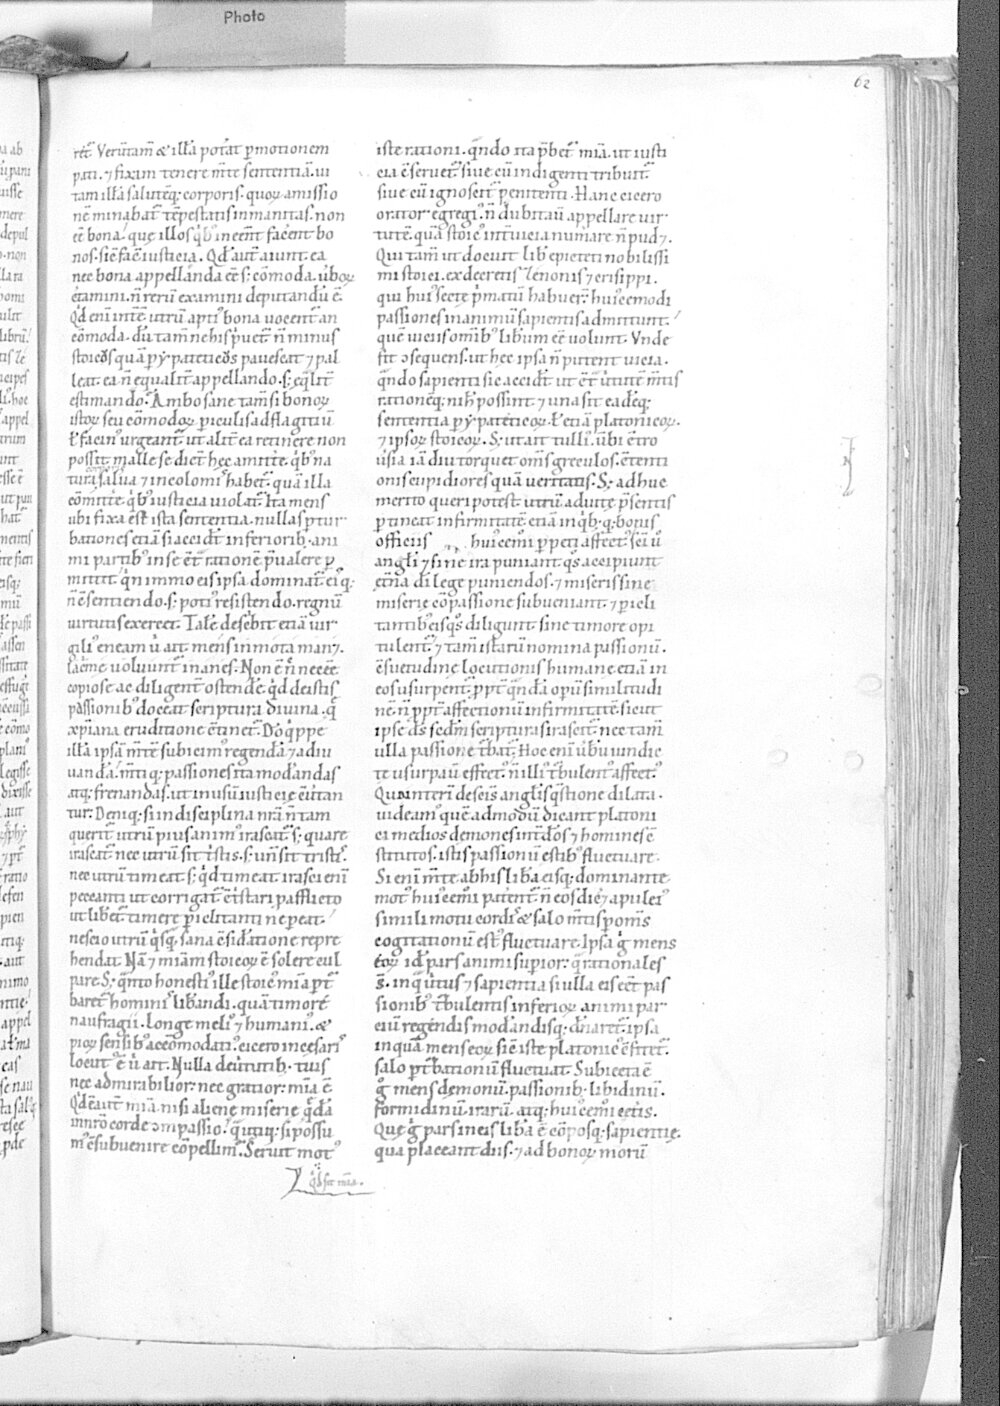 Photo
62
ret̃. Verũtam̃ & illã potãt ꝑmotionem
pati. ⁊ fixam tenere m̃te sententiã. ui
tam illã salutẽq; corporis. quoꝝ amissio
nẽ minabat̃ tẽpestatis inmanitas. non
eẽ bona. quę illos qͥb᷒ ineẽnt facẽnt bo
nos. sic̃ fac̃ iusticia. Qd̃ aũt aiunt. ea
nec bona appellanda eẽ sꝫ cõmoda. ũboꝝ
c̃tamini. ñ rerũ examini deputandũ ẽ.
Qd̃ enĩ int̃ẽ. utrũ apti᷒ bona uocent̃ an
cõmoda. dũ tam̃ ne his p̃uet̃. ñ minus
stoicus quã pỹpateticus pauescat ⁊ pal
leat. ea ñ equalit̃ appellando. sꝫ eq̃lit̃
estimando. Ambo sane tam̃ si bonoꝝ
istoꝝ seu cõmodoꝝ piculis ad flagitiũ
ł facin᷒ urgeant̃. ut alit̃ ea retinere non
possĩt. malle se dic̃t hęc amittẽ. qͥb᷒ na
tura corporis salua ⁊ incolomis habet̃. quã illa
cõmittẽ. qͥb᷒ iusticia uiolat̃. Ita mens
ubi fixa est ista sententia. nullas ꝑtur
bationes etiã si accidt̃ inferiorib᷒ ani
mi partib᷒ in se c̃t rationẽ p̃ualere ꝑ
mittit. qͥn immo eis ipsa dominat̃. eiq;
ñ c̃sentiendo. sꝫ poti᷒ resistendo. regnũ
uirtutis exercet. Talẽ desc̃bit etiã uir
gili᷒ eneam ũ ait. mens inmota man&.
lacrime uoluunt̃ inanes. Non ẽ ñc necẽẽ
copiose ac diligent̃ ostendẽ. qͥd de istis
passionib᷒ doceat scriptura diuina. q̃
xp̃iana eruditione c̃tinet̃. Dõ qͥppe
illã ipsã m̃tẽ subicim᷒ regendã ⁊ adiu
uandã. m̃tiq; passiones ita mod̃andas
atq; frenandas. ut in usũ iusticię c̃u̇tan
tur. Deniq; si in disciplina nr̃a ñ tam
querit̃ utrũ pius anim᷒ irascat̃. sꝫ quare
irascat̃. nec utrũ sit t̃stis. sꝫ uñ sit tristis᷒.
nec utrũ timeat sꝫ qͥd timeat. irasci enĩ
peccanti ut corrigat̃. c̃tristari ꝓ afflicto
ut libet̃. timere ꝑiclitanti ne pereat
nescio utrũ qͥsq̃. sana c̃sid̃atione repre
hendat. Nã ⁊ miãm stoicoꝝ ẽ solere cul
pare Sꝫ q̃nto honesti᷒ ille stoic᷒ miã ꝑt̃
baret̃ hominis lib̃andi. quã timore
naufragii. Longe meli᷒ ⁊ humani᷒. &
pioꝝ sensib᷒ accõmodati᷒. cicero in cesaris
locut᷒ ẽ ũ ait. Nulla de uirtutib᷒ tuis
nec admirabilior. nec gratior. miã ẽ.
Qd̃ ẽ aũt miã. nisi alienę miserię qͥdã
in nr̃o corde ɔmpassio. q̃ utiq; si possu
m᷒ c̃ subuenire cõpellim᷒. Seruit mot᷒
qͥd sit miã.
iste rationi. qñdo ita p̃bet̃ miã. ut iusti
cia c̃seruet̃. siue cũ indigenti tribuit̃.
siue cũ ignoscit̃ penitenti. Hanc cicero
orator egregi᷒. ñ dubitau̇ appellare uir
tutẽ. quã stoicis int̃ uicia num̃are ñ pud&.
Qui tam̃ ut docuit lib̃ epicteti nobilissi
mi stoici. ex decretis zenonis ⁊ crisippi.
qui hui᷒ sectę p̃matũ habuer̃. hui᷒cemodi
passiones in animũ sapientis admittunt.
quẽ uiciis omĩb᷒ lib̃um eẽ uolunt. Vnde
fit ɔsequens. ut hęc ipsa ñ putent uicia.
qñdo sapienti sic accidt̃. ut c̃t uirtutẽ m̃tis
rationẽq; nih̃ possint. ⁊ una sit eadẽq;
sententia pỹpateticoꝝ. ł etiã platonicoꝝ.
⁊ ipsoꝝ stoicoꝝ. Sꝫ ut ait tulli᷒. ũbi c̃tro
ũsia iã diu torquet om̃s gręculos. c̃tenti
onis cupidiores quã ueritatis. Sꝫ adhuc
merito queri potest. utrũ ad uitę p̃sentis
ꝑtineat infirmitatẽ etiã in qͥb᷒q; bonis
officiis hui᷒cemi ꝑpeti affect᷒. sc̃i ũ
angl̃i ⁊ sine ira puniant q̃s accipiunt
ęt̃na di lege puniendos. ⁊ miseris sine
miserię cõpassione subueniant. ⁊ ꝑicli
tantib᷒ eis q̃s diligunt sine timore opi
tulent̃. ⁊ tam̃ istarũ nomina passionũ.
c̃suetudine locutionis humanę etiã in
eos usurpent̃. ꝓpt̃ qñdã opũ similitudi
nẽ ñ ꝓpt̃ affectionũ infirmitatẽ. sicut
ipse ds̃ scd̃m scripturas irascit̃. nec tam̃
ulla passione t̃bat̃. Hoc enĩ ũbũ uindic
tę usurpau̇ effect᷒. ñ illi᷒ t̃bulent᷒ affect᷒.
Qua interĩ de sc̃is angl̃is q̃stione dilata.
uideam᷒ quẽ admodũ dicant platoni
ci medios demones int̃ dõs ⁊ homines c̃
stitutos. istis passionũ estib᷒ fluctuare.
Si enĩ m̃te ab his lib̃a eisq; dominante
mot᷒ hui᷒cemi patent̃. ñ eos dic̃ apulei᷒
simili motu cordis & salo m̃tis ꝑ om̃s
cogitationũ est᷒ fluctuare. Ipsa g̃ mens
eoꝝ id ẽ pars animi supior. q̃ rationales
s̃. in qͣ uirtus ⁊ sapientia si ulla eis eẽt pas
sionib᷒ t̃bulentis inferioꝝ animi par
ciũ regendis mod̃andisq; dñaret̃. ipsa
inquã mens eoꝝ sic̃ iste platonic᷒ c̃fitet̃.
salo ꝑt̃bationũ fluctuat. Subiecta ẽ
g̃ mens demonũ. passionib᷒ libidinũ.
formidinũ irarũ. atq; hui᷒cemi cẽtis.
Quę g̃ pars in eis lib̃a ẽ cõposq; sapientię.
qua placeant diis. ⁊ ad bonoꝝ morũ